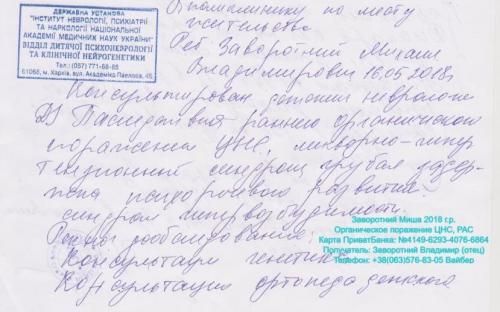 ДЕРЖАВНА УСТАНОВА
"ІНСТИТУТ НЕВРОЛОГІЇ, ПСИХІАТРІЇ
ТА НАРКОЛОГІЇ НАЦІОНАЛЬНОЇ
АКАДЕМІЇ МЕДИЧНИХ НАУК УКРАЇНИ"
ВІДДІЛ ДИТЯЧОЇ ПСИХОНЕВРОЛОГІЇ
ТА КЛІНІЧНОЇ НЕЙРОГЕНЕТИКИ
Тел.: (057) 771-68-85
61068, м. Харків, вул. Академіка Павлова, 46
В поликлинику по месту
жительства
Реб. Заворотний Михаил
Владимирович 16.05.2018г
Консультирован детским неврологом
DS Последствия раннего органического
поражения ЦНС, ликворно-гипер
тензионный синдром, грубая задер-
жка психоречевого развития.
синдром гипервозбудимости.
обследование:
Консультация генетика
Консультация ортопеда детского
Заворотний Миша 2018 г.р.
Органическое поражение ЦНС, РАС
Карта ПриватБанка: №4149-6293-4076-6864
Получатель: Заворотний Владимир (отец)
Телефон: +38(063)576-63-05 Вайбер